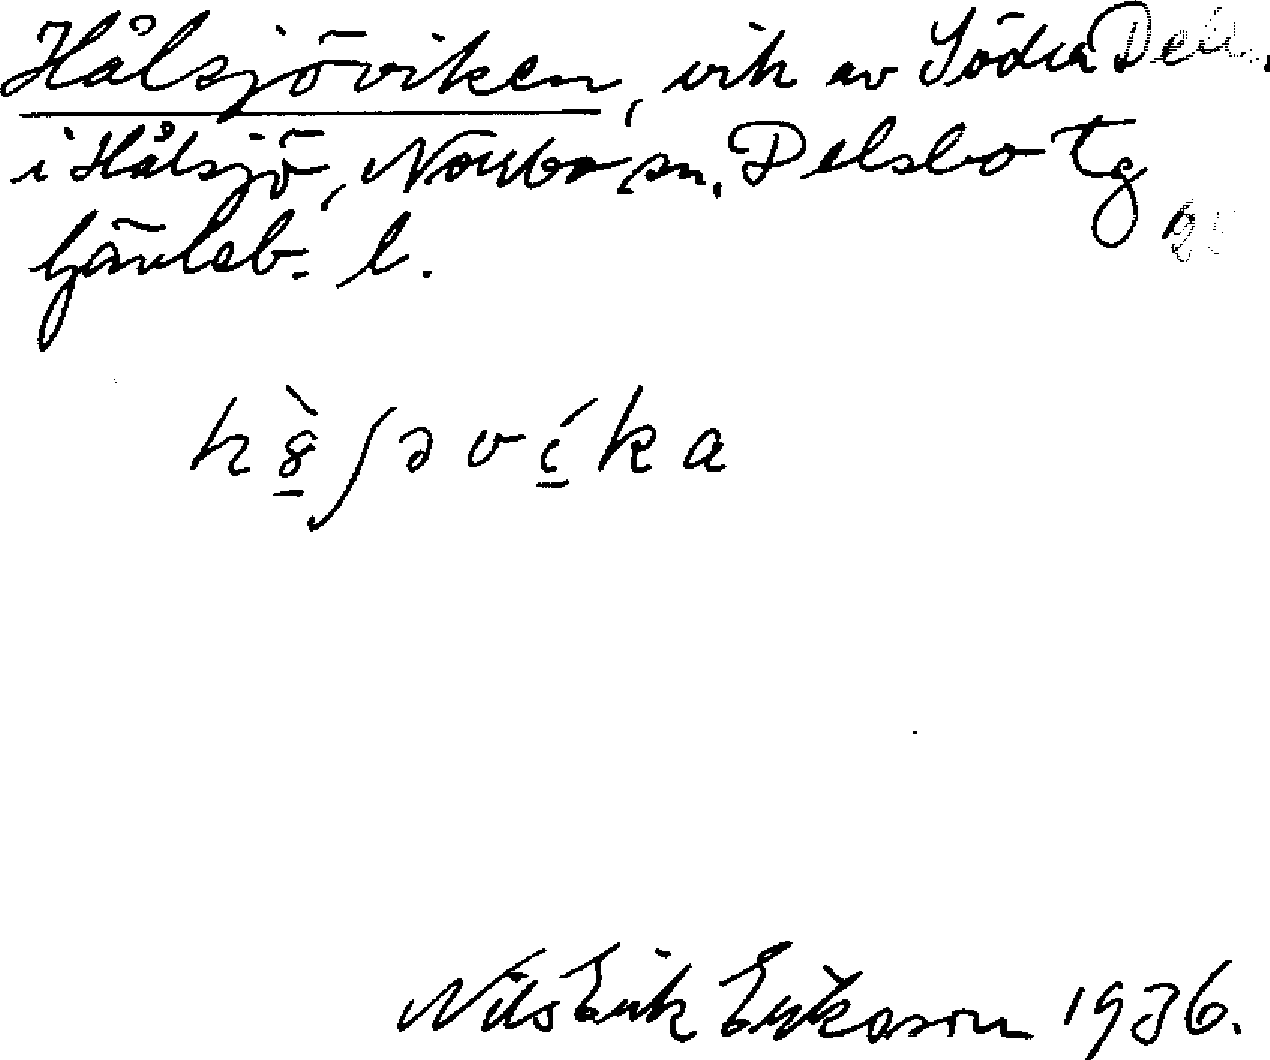 Hålsjöviken, vik av Södra Dell.
i Hålsjö, Norrbo sn. Delsbo tg
Gävleb. l.
hȣ̠̀ʃəví̠ka
Nils Erik Eriksson 1936.